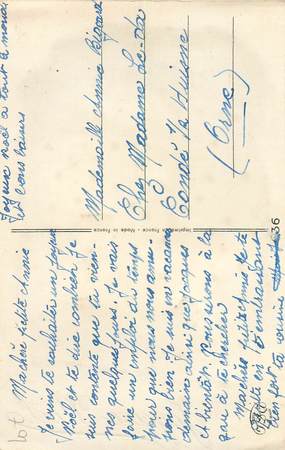 Ma chère petite Annie
Je viens te souhaiter un joyeux
Noël et te dire combien je
suis contente que tu vien-
nes quelques jours. Je vais
donc un emploi du temps
pour que nous nous amu-
sions bien. Je suis en vacances
demain ainsi que Jacques
et bientôt nous irons à la
gare te chercher
Ma chère petite Annie je te
quitte en t'embrassant
bien fort ta cousine
Joyeux Noël à tout le monde
et bons baisers
Mademoiselle Annie
Chez Madame
Condé s/ Huisne
(Orne)
Imprimé en France - Made in France
36
lot